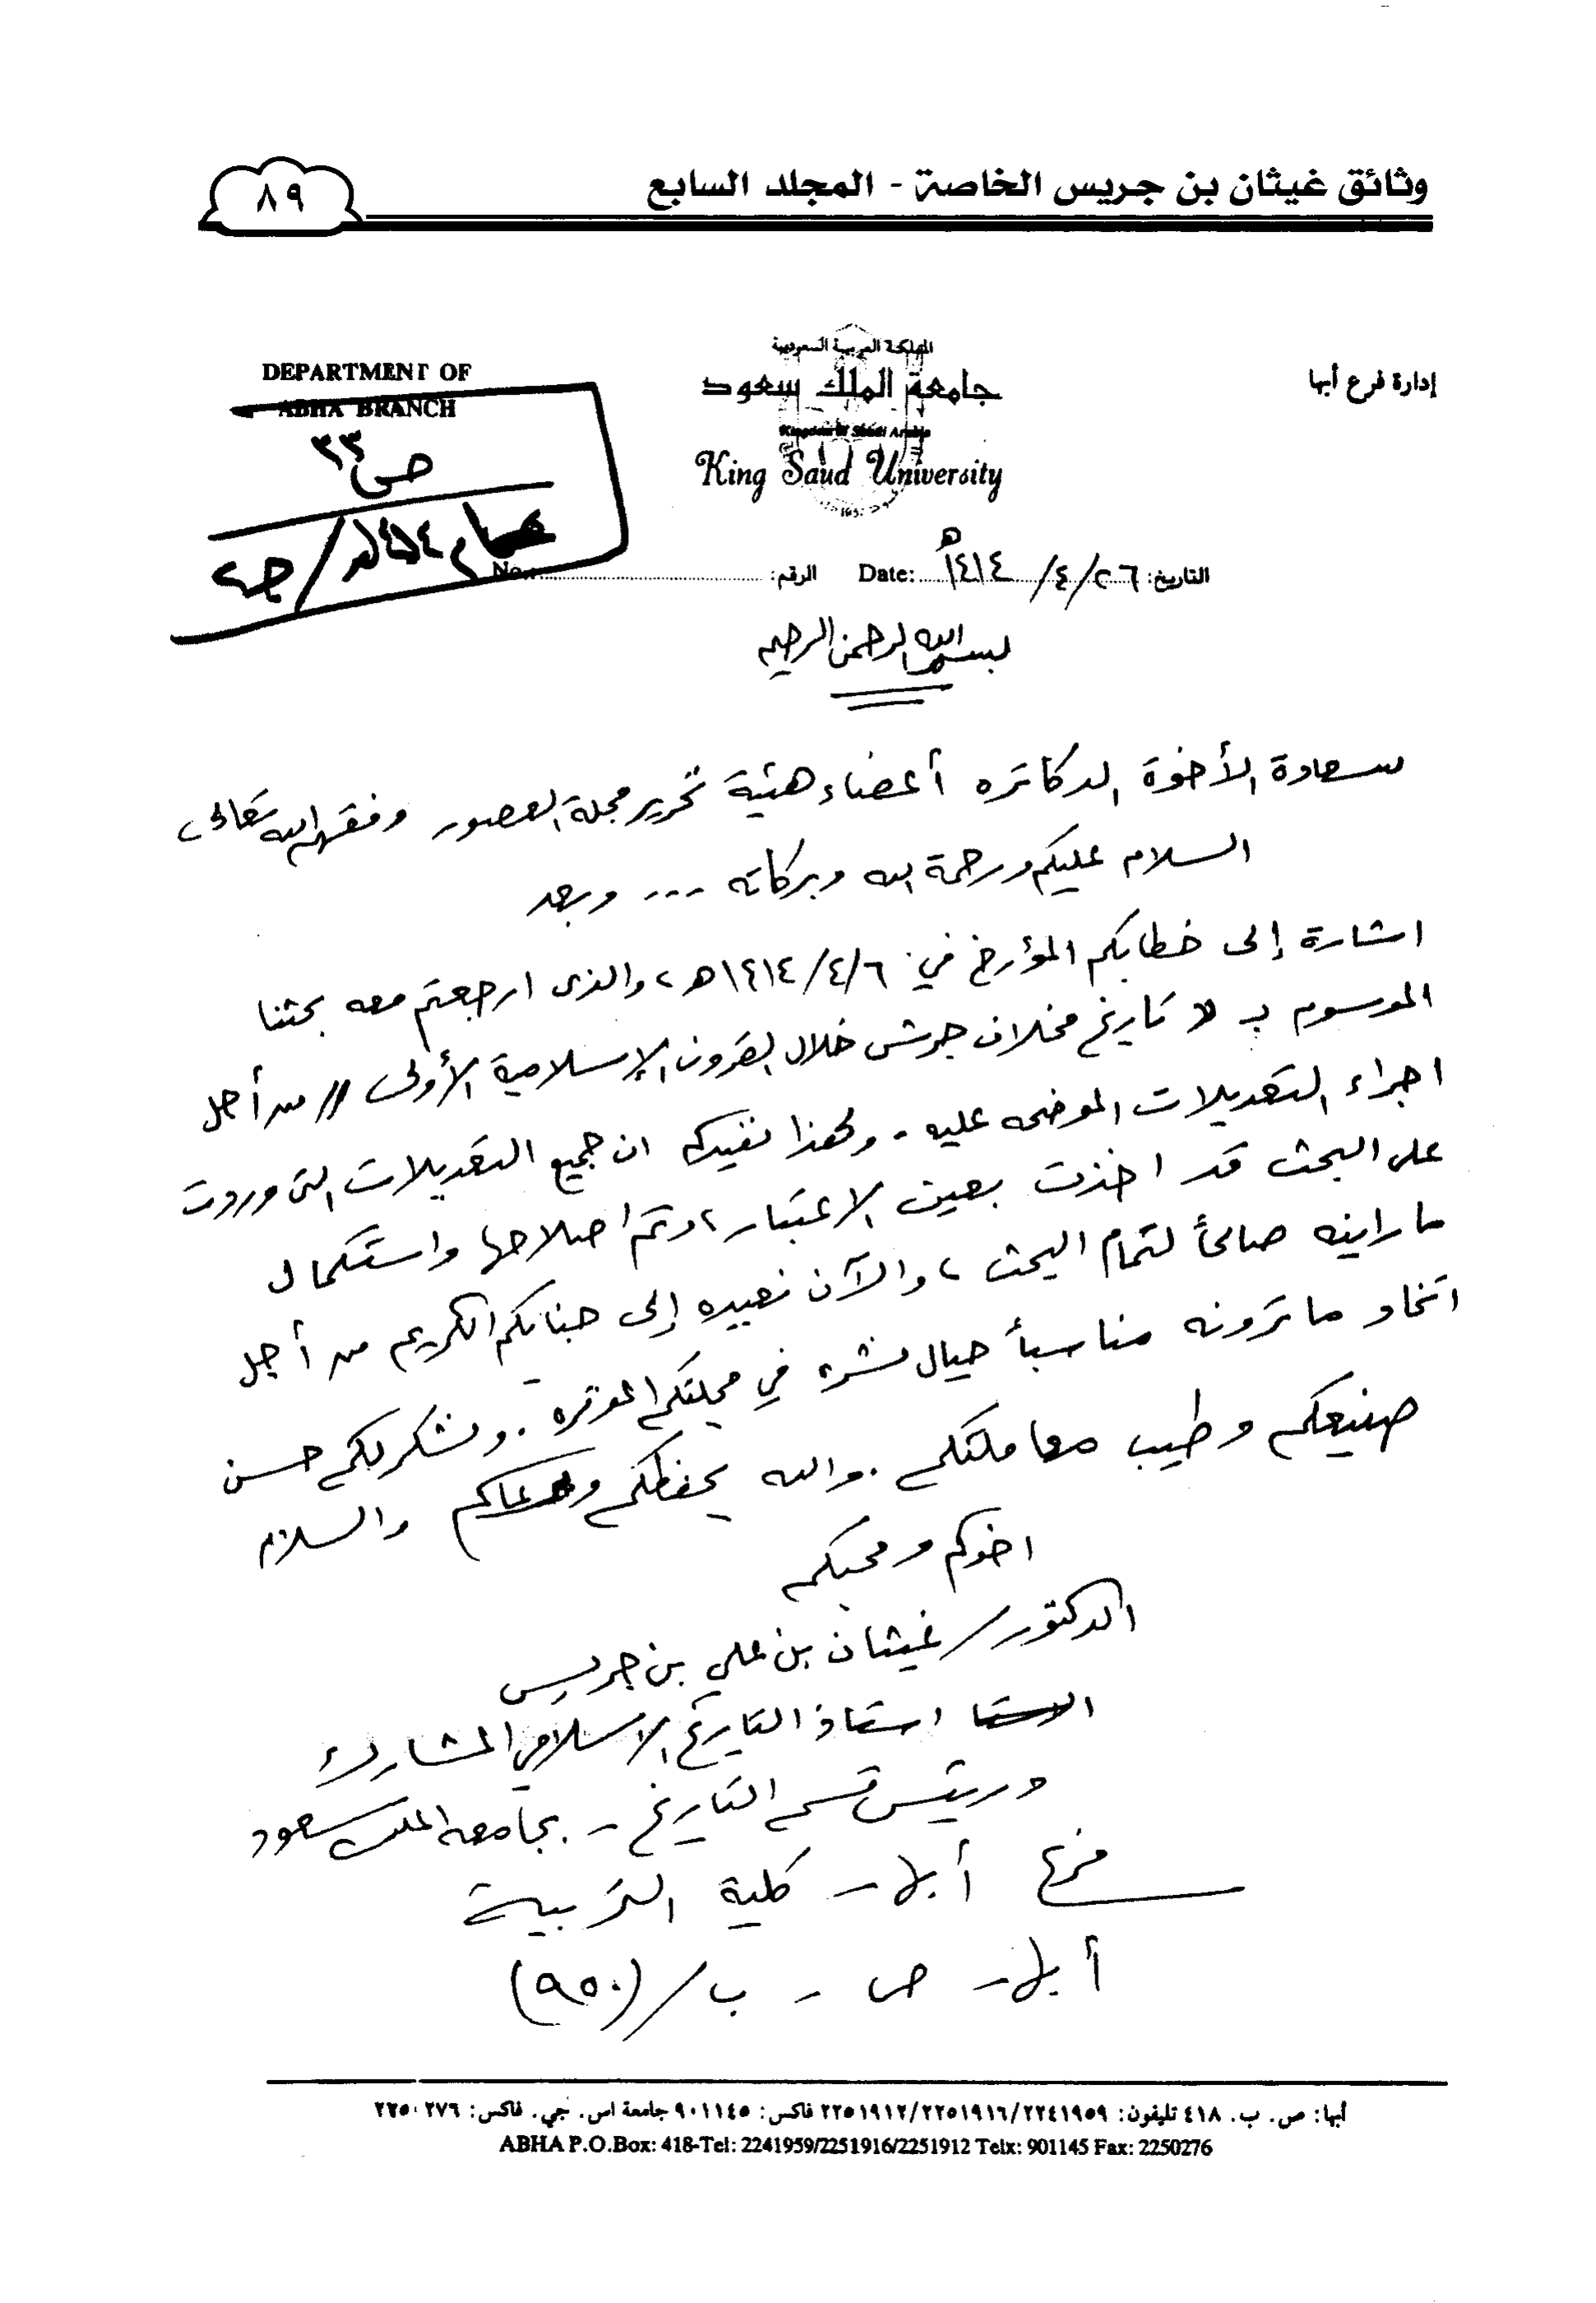 وثائق غيثان بن جريس الخاصة - المجلد السابع
٨٩
إدارة فرع أبها
المملكة العربية السعودية
جامعة الملك سعود
Kingdom of Saudi Arabia
King Saud University
DEPARTMENT OF
ABHA BRANCH
ص ٣٣
عام ١٤١٤هـ / ج٢
التاريخ: ٢٦/٤/١٤١٤هـ Date: الرقم: No.:
بسم الله الرحمن الرحيم
سعادة الأخوة الدكاتره أعضاء هيئة تحرير مجلة العصور وفقهم الله تعالى،
السلام عليكم ورحمة الله وبركاته ... وبعد
اشارة إلى خطابكم المؤرخ في: ١٤١٤/٤/٦هـ، والذى ارجعتم معه بحثنا
الموسوم بـ "تاريخ مخلاف جرش خلال القرون الإسلامية الأولى" من أجل
اجراء التعديلات الموضحه عليه. ولهذا نفيدكم ان جميع التعديلات التى وردت
على البحث قد اخذت بعين الاعتبار، وتم اصلاحها واستكمال
ما رايته صالحاً لتمام البحث، والآن نعيده إلى جنابكم الكريم من أجل
اتخاذ ما ترونه مناسباً حيال نشره في مجلتكم الموقره. ونشكر لكم حسن
صنيعكم وطيب معاملتكم. والله يحفظكم ويرعاكم والسلام
اخوكم ومحبكم
الدكتور / غيثان بن علي بن جريس
الاستا استاذ التاريخ الاسلامي المشارك
ورئيس قسم التاريخ - بجامعه الملك سعود
فرع أبها - كلية التربية
أبها - ص - ب / (٩٥٠)
أبها: ص. ب. ٤١٨ تليفون: ٢٢٤١٩٥٩/٢٢٥١٩١٦/٢٢٥١٩١٢ فاكس: ٩٠١١٤٥ جامعة اس. جي. فاكس: ٢٢٥٠٢٧٦
ABHA P.O.Box: 418-Tel: 2241959/2251916/2251912 Telx: 901145 Fax: 2250276